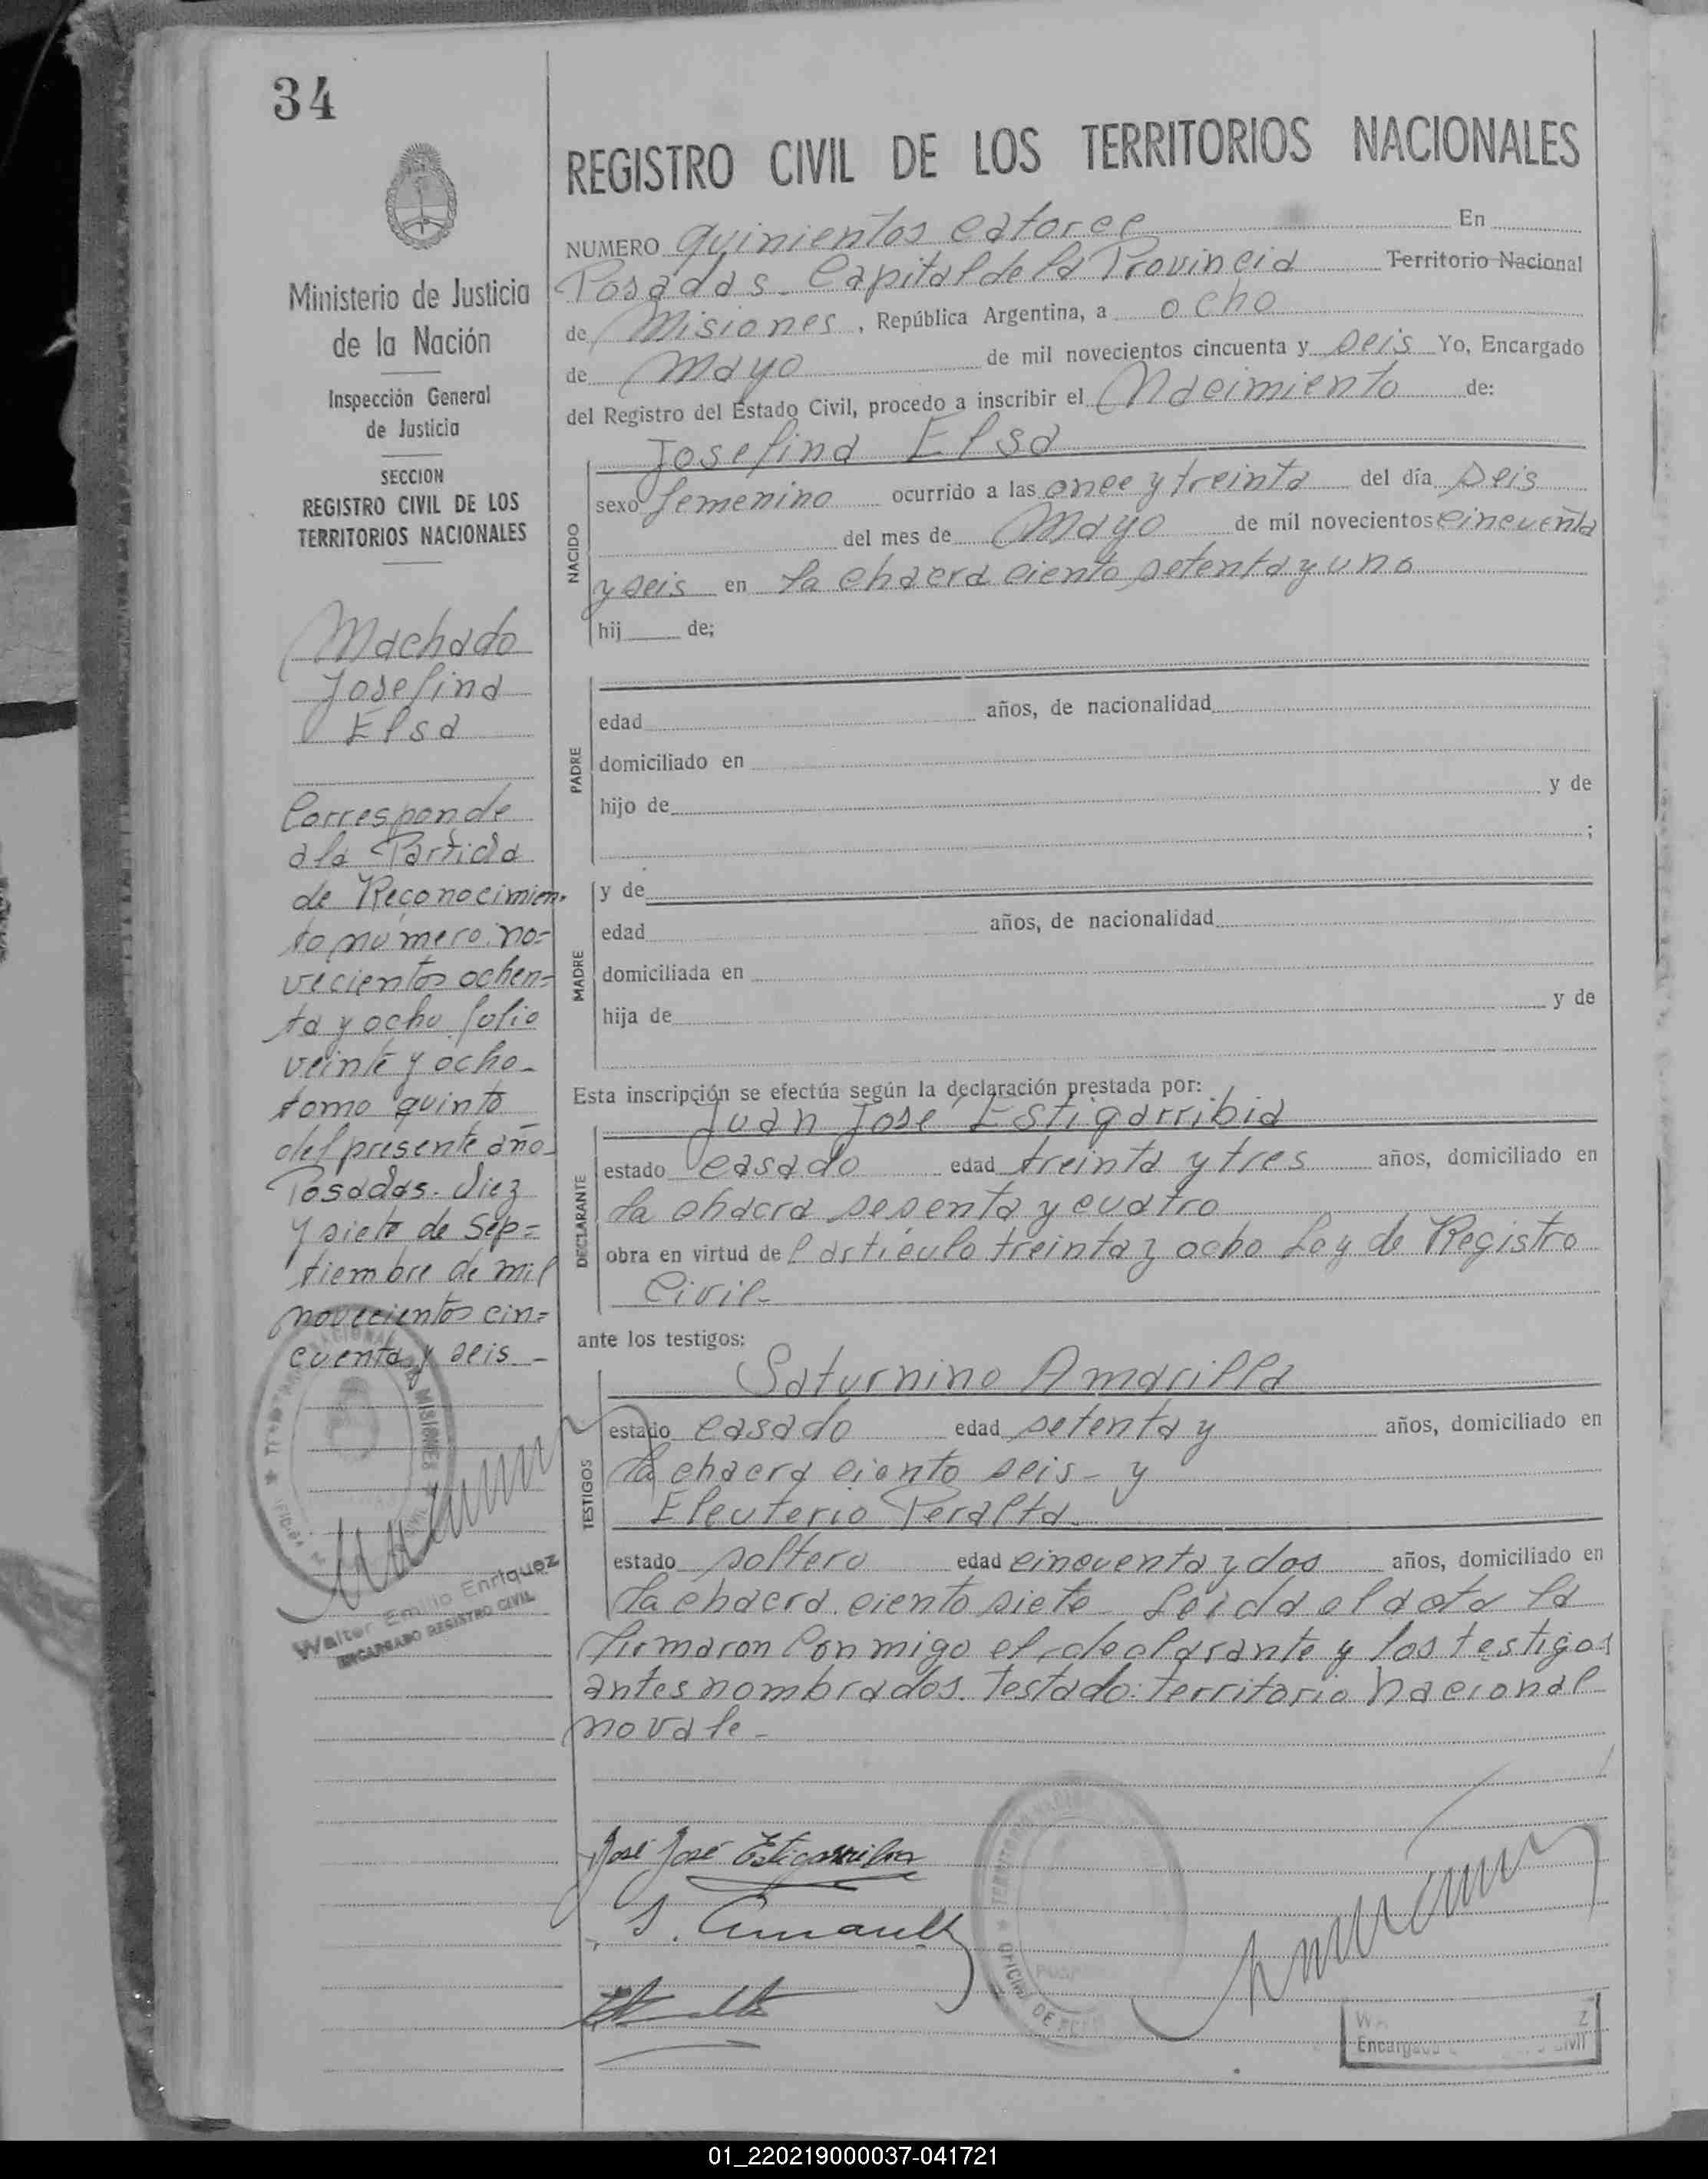 34
Ministerio de Justicia
de la Nación
Inspección General
de Justicia
SECCION
REGISTRO CIVIL DE LOS
TERRITORIOS NACIONALES
Machado
Josefina
Elsa
Corresponde
a la Partida
de Reconocimien-
to número no=
vecientos ochen=
ta y ocho folio
veinte y ocho-
tomo quinto
del presente año-
Posadas. diez
y siete de Sep=
tiembre de mil
novecientos cin=
cuenta y seis -
Walter Emilio Enriquez
ENCARGADO REGISTRO CIVIL
REGISTRO CIVIL DE LOS TERRITORIOS NACIONALES
NUMERO quinientos catorce En
Posadas. Capital de la Provincia Territorio Nacional
de Misiones, República Argentina, a ocho
de Mayo de mil novecientos cincuenta y seis Yo, Encargado
del Registro del Estado Civil, procedo a inscribir el Nacimiento de:
NACIDO
Josefina Elsa
sexo femenino ocurrido a las once y treinta del día seis
del mes de Mayo de mil novecientos cincuenta
y seis en la chacra ciento setenta y uno
hij de;
PADRE
edad años, de nacionalidad
domiciliado en
hijo de y de
;
MADRE
y de
edad años, de nacionalidad
domiciliada en
hija de y de
Esta inscripción se efectúa según la declaración prestada por:
DECLARANTE
Juan José Estigarribia
estado casado edad treinta y tres años, domiciliado en
la chacra sesenta y cuatro
obra en virtud del artículo treinta y ocho Ley de Registro
Civil-
ante los testigos:
TESTIGOS
Saturnino Amarilla
estado casado edad setenta y años, domiciliado en
la chacra ciento seis- y
Eleuterio Peralta-
estado soltero edad cincuenta y dos años, domiciliado en
la chacra ciento siete Leida el acta la
firmaron conmigo el declarante y los testigos
antes nombrados. Testado: territorio nacional
no vale-
José José Estigarribia
Encargado Civil
01_220219000037-041721